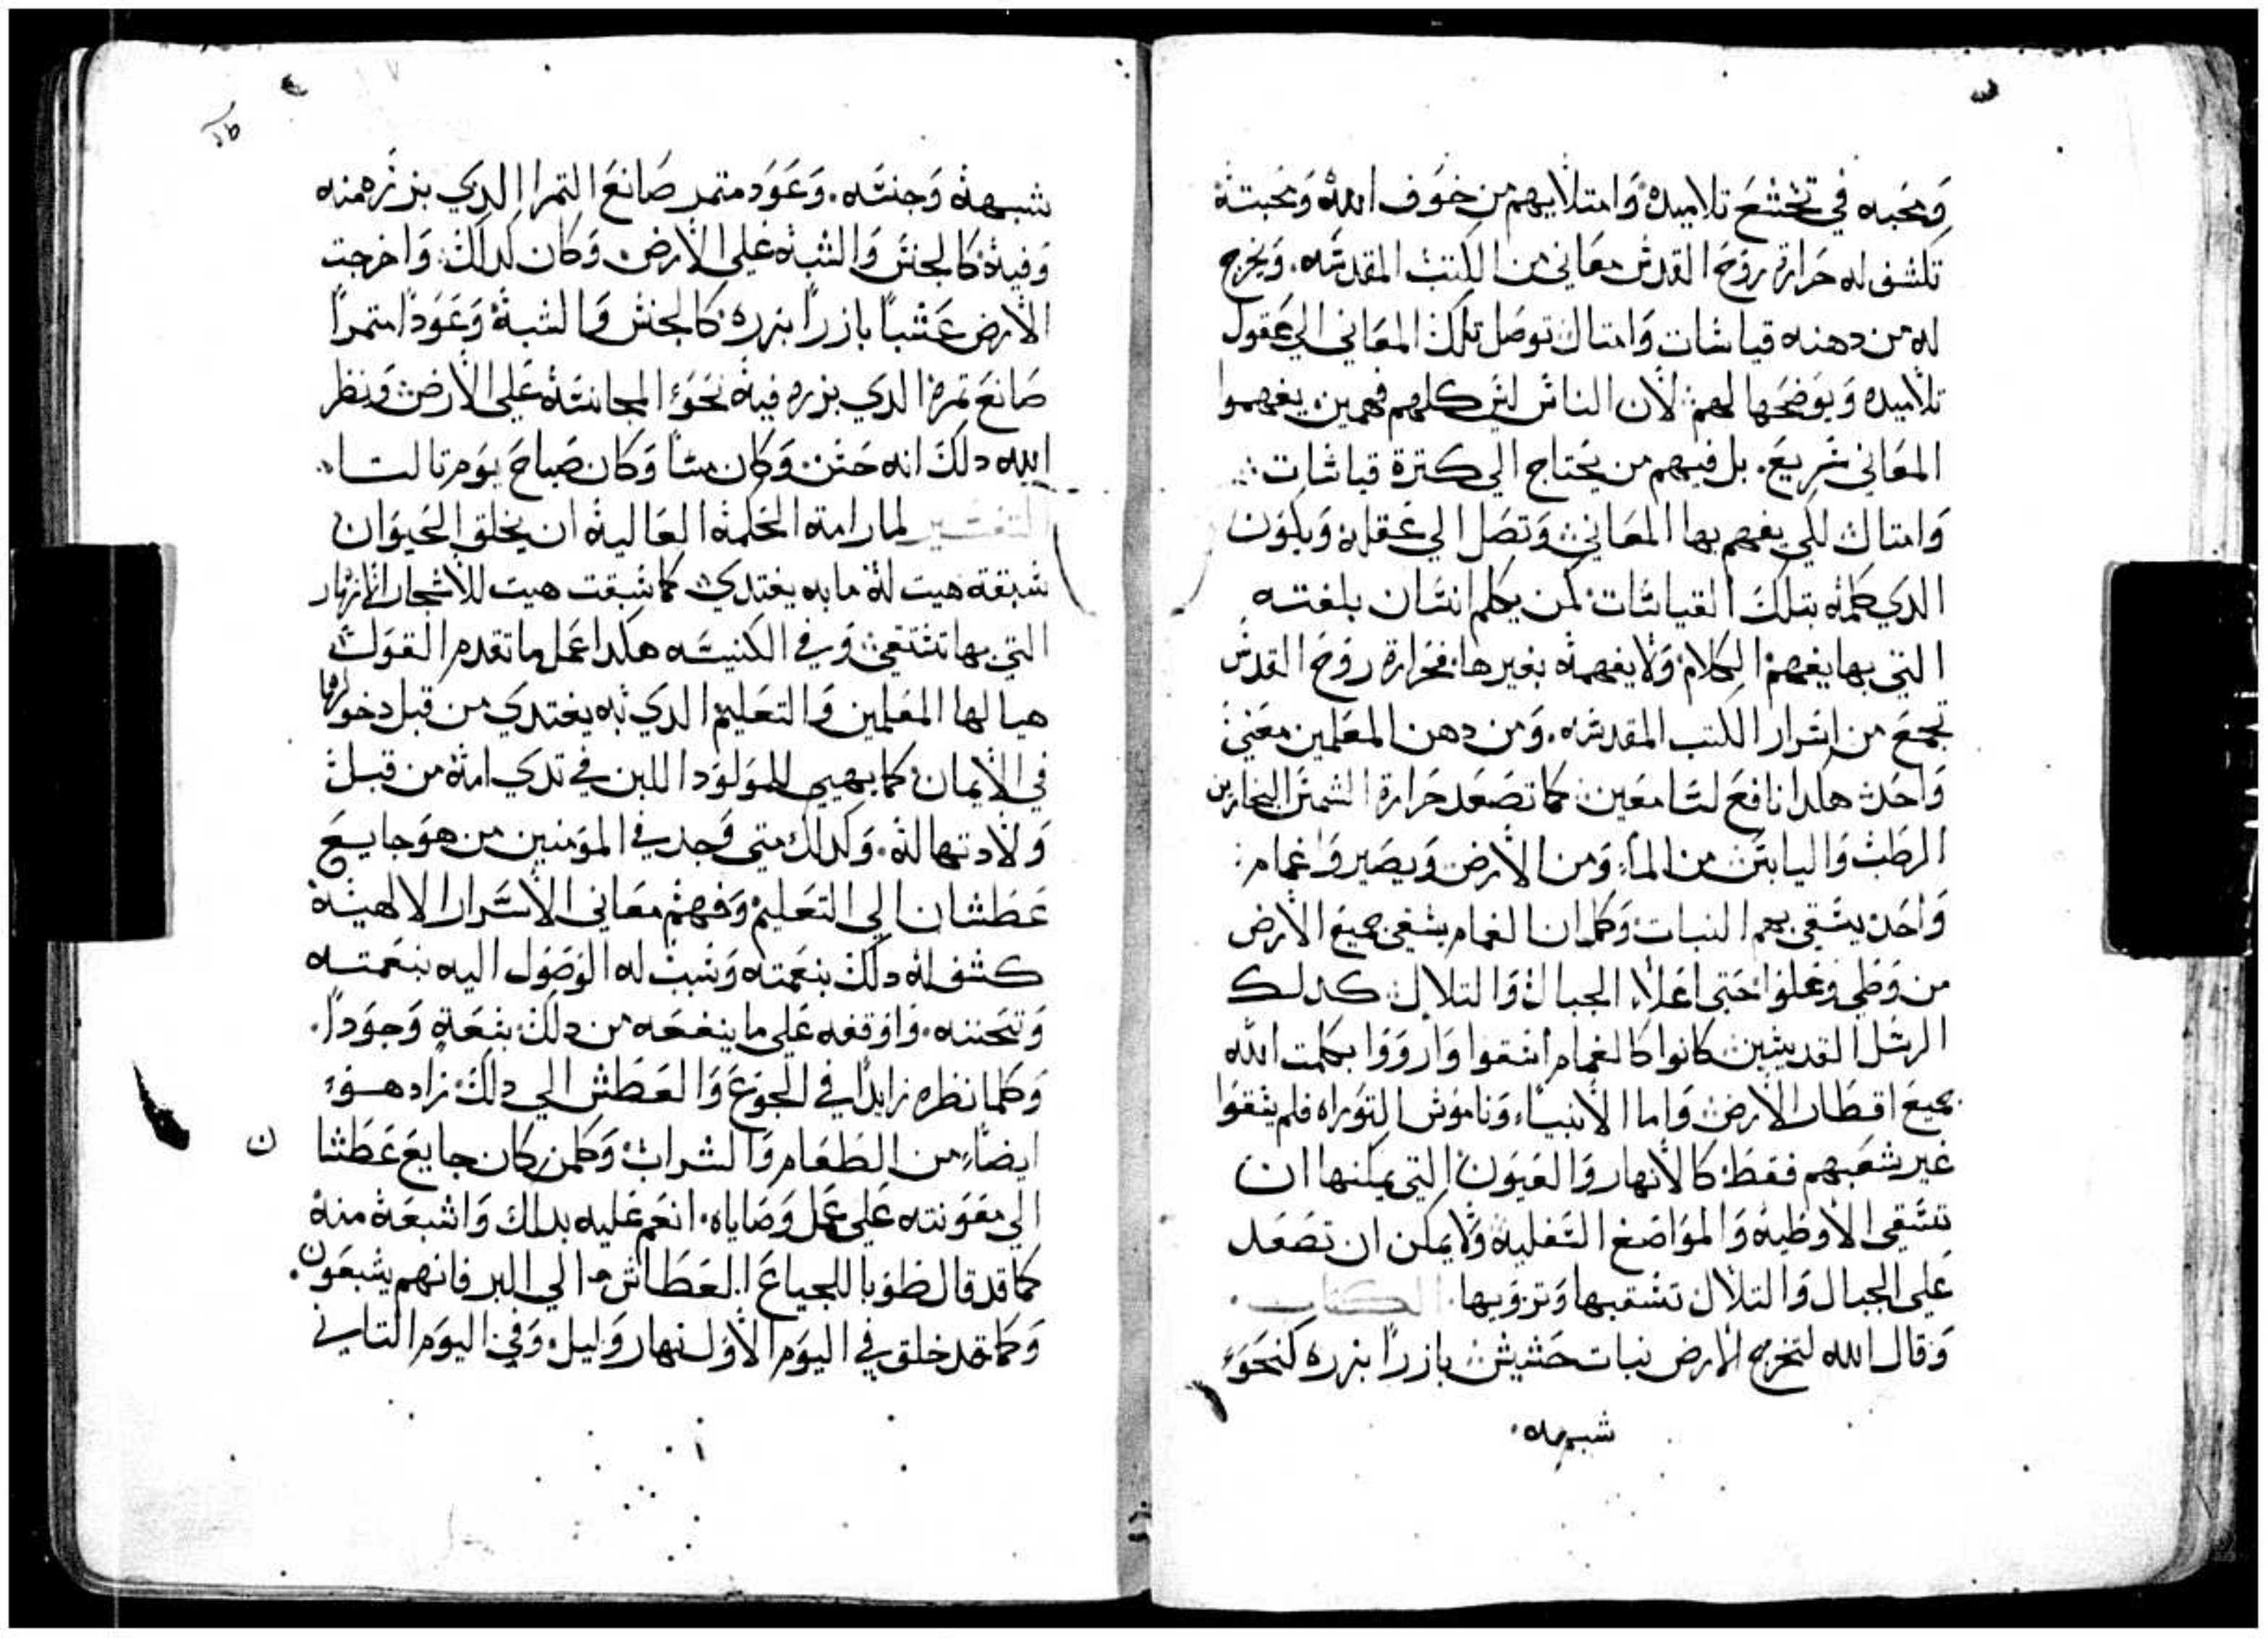 ومحبه في تخشع تلاميده وامتلايهم من خوف الله ومحبته
تكشف له حرارة روح القدس معاني من الكتب المقدسه. ويخرج
له من دهنه قياسات وامتال توصل تلك المعاني الي عقول
تلاميده ويوضحها لهم لان الناس ليس كلهم فهمين يفهموا
المعاني سريع. بل فيهم من يحتاج الي كترة قياسات
وامتال لكي يفهم بها المعاني وتصل الي عقله ويكون
الدي كلمه بتلك القياسات كمن يكلم انسان بلغته
التي بها يفهم الكلام ولا يفهمه بغيرها فحرارة روح القدس
تجمع من اسرار الكتب المقدسه. ومن دهن المعلمين معني
واحد هكدا نافع لسامعين كما تصعد حرارة الشمس البخارين
الرطب واليابس من الماء ومن الارض ويصيروا غمام
واحد يسقي بهم النبات وكما ان الغمام يسقي جميع الارض
من وطي وعلوا حتي اعلاء الجبال والتلال كدلك
الرسل القديسين كانوا كالغمام اسقوا وارووا بكلمت الله
جميع اقطار الارض واما الانبياء وناموس التوراه فلم يسقوا
غير شعبهم فقط كالانهار والعيون التي يمكنها ان
تسقي الاوطيه والمواضع السفليه ولا يمكن ان تصعد
علي الجبال والتلال تسقيها وترويها. الكتاب.
وقال الله لتخرج الارض نبات حشيش بازرا بزره كنحو
شبهه.
شبهه وجنسه. وعود متمر صانع التمر الدي بزره منه
وفيه كالجنس والشبه علي الارض وكان كدلك واخرجت
الارض عشبا بازرا بزره كالجنس والشبه وعودا متمرا
صانع تمرة الدي بزره فيه نحو المجانسه علي الارض ونظر
الله دلك انه حسن وكان مسا وكان صباح يوم تالت
التفسير لما رامة الحكمه العاليه ان يخلق الحيوان
سبقة هيت له ما به يغتدي كما سبقت هيت للاشجار الانهار
التي بها تستقي وفي الكنيسه هكدا عمل ما تقدم القول
هيا لها المعلمين والتعليم الدي به يغتدي من قبل دخولها
في الايمان كما يهيي للمولود اللبن في تدي امه من قبل
ولادتها له. وكدلك متي وجد في المومنين من هو جايع
عطشان الي التعليم وفهم معاني الاسرار الالهيه
كشف له دلك بنعمته وسبب له الوصول اليه بنعمته
وتحننه. واوقفه علي ما ينفعه من دلك بنعمة وجودا.
وكلما نظره زايدا في الجوع والعطش الي دلك زاد هو
ايضا من الطعام والشراب وكلمن كان جايع عطشا ن
الي معونته علي عمل وصاياه. انعم عليه بدلك واشبعه منه
كما قد قال طوبا للجياع العطاش الي البر فانهم يشبعون.
وكما قد خلق في اليوم الاول نهار وليل وفي اليوم التاني